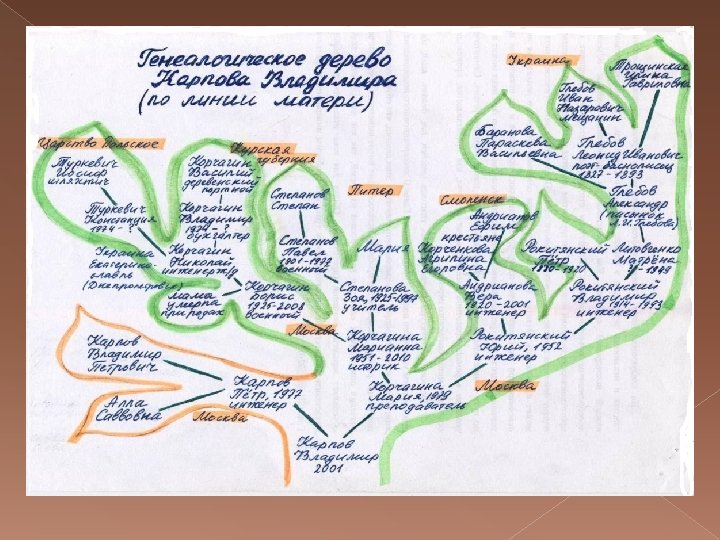 Генеалогическое дерево
Карпова Владимира
(по линии матери)
Украина
Трощинская
Гавриловна
Глебов
Иван
Назарович
мещанин
Баранова
Параскева
Васильевна
Глебов
Леонид Иванович
поэт-баснописец
1827-1893
Глебов
Александр
(писанок
Л.И. Глебова)
Царство Польское
Туркевич
Иосиф
шляхтич
Курская
губерния
Корчагин
Василий
деревенский
портной
Степанов
Степан
Питер
Смоленск
Андрианов
Ефим
крестьяне
Корченкова
Агрипина
Егоровна
Туркевич
Констанция
1974 - ?
Корчагин
Владимир
1974 - ?
бухгалтер
Степанов
Павел
1901-1972
военный
Мария
Рокитянский
Пётр
1870-1920
Литовченко
Матрёна
Украина
Екатерино-
славль
(Днепропетровск)
Корчагин
Николай
инженер ж/д
мама
умерла
при родах
Корчагин
Борис
1925-2003
военный
Степанова
Зоя, 1925-1997
учитель
Андрианова
Вера
1920-2001
инженер
Рокитянский
Владимир
1914-1993
инженер
Москва
Карпов
Владимир
Петрович
Корчагина
Марианна
1951-2010
историк
Рокитянский
Юрий, 1952
инженер
Алла
Саввовна
Карпов
Пётр, 1977
инженер
Москва
Корчагина
Мария, 1979
преподаватель
Москва
Карпов
Владимир
2001